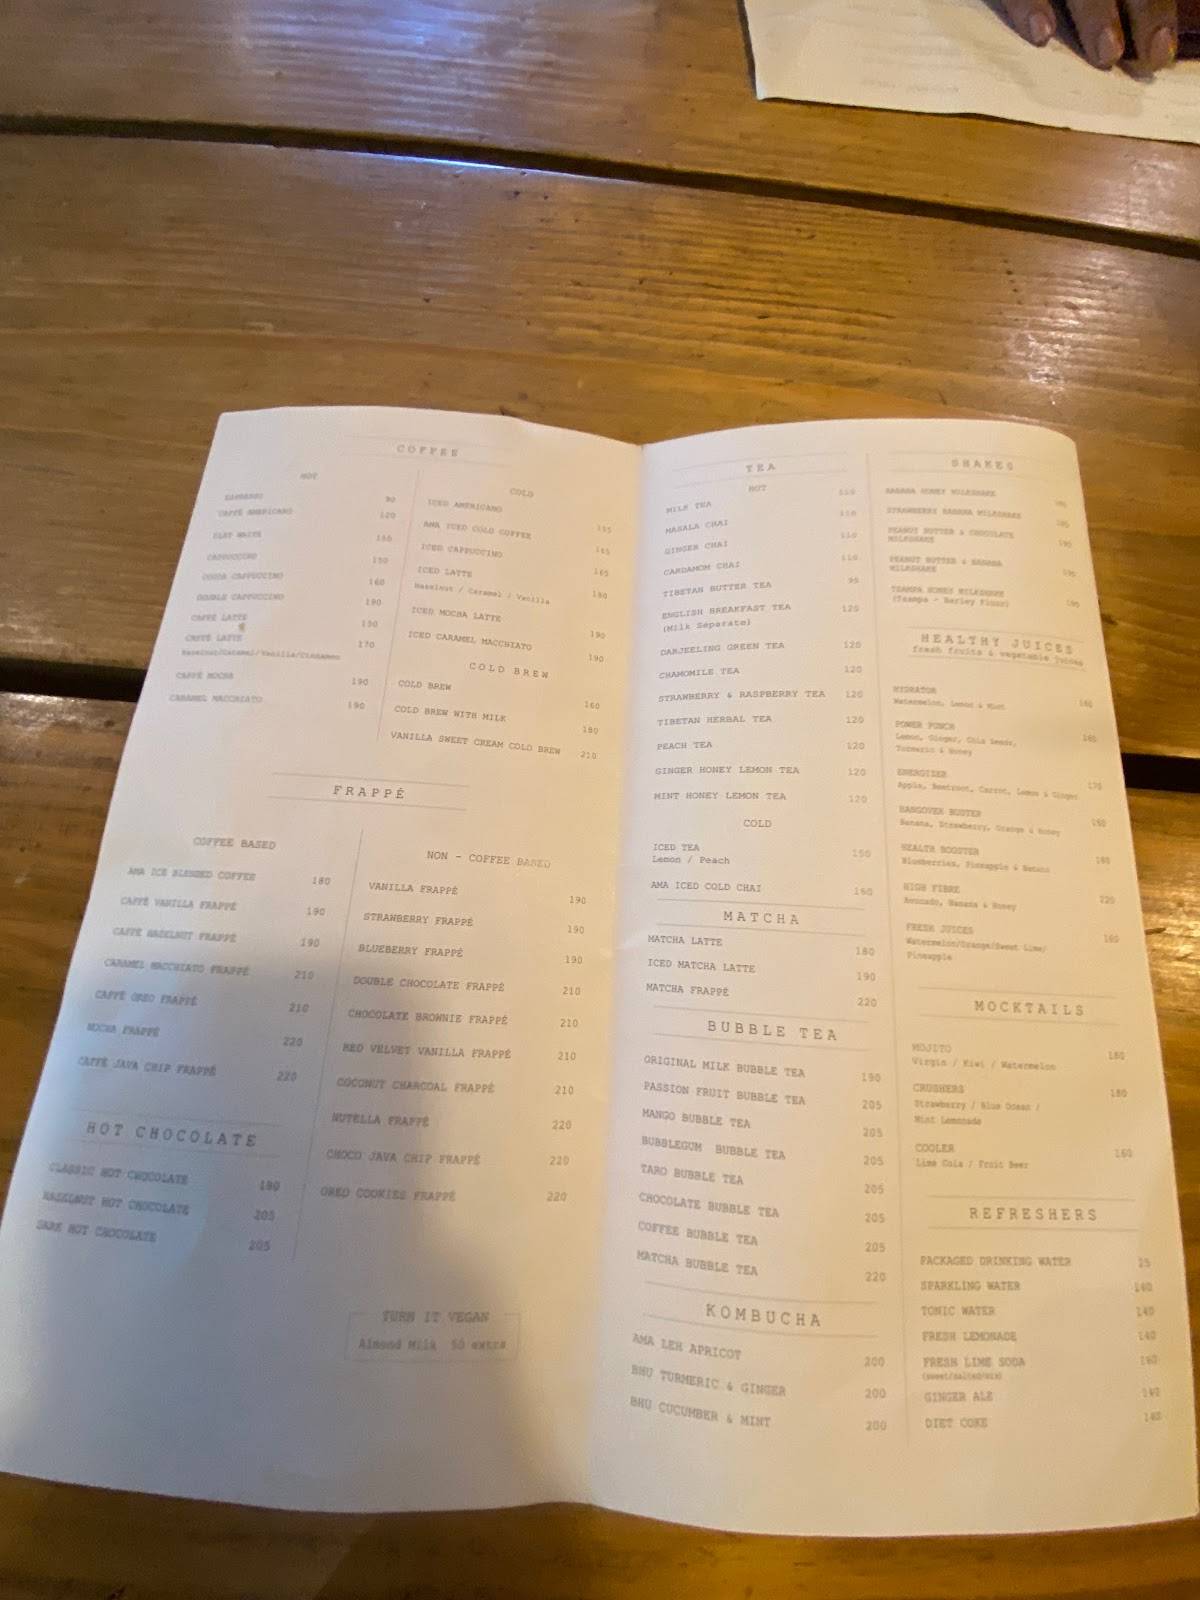 COFFEE
HOT
ESPRESSO 90
CAFFÉ AMERICANO 120
FLAT WHITE 150
CAPPUCCINO 150
COCOA CAPPUCCINO 160
DOUBLE CAPPUCCINO 190
CAFFÉ LATTE 150
CAFFÉ LATTE 170
Hazelnut/Caramel/Vanilla/Cinnamon
CAFFÉ MOCHA 190
CARAMEL MACCHIATO 190
COLD
ICED AMERICANO 155
AMA ICED COLD COFFEE 165
ICED CAPPUCCINO 165
ICED LATTE
Hazelnut / Caramel / Vanilla 180
ICED MOCHA LATTE 190
ICED CARAMEL MACCHIATO 190
COLD BREW
COLD BREW 160
COLD BREW WITH MILK 180
VANILLA SWEET CREAM COLD BREW 210
FRAPPÉ
COFFEE BASED
AMA ICE BLENDED COFFEE 180
CAFFÉ VANILLA FRAPPÉ 190
CAFFÉ HAZELNUT FRAPPÉ 190
CARAMEL MACCHIATO FRAPPÉ 210
CAFFÉ OREO FRAPPÉ 210
MOCHA FRAPPÉ 220
CAFFÉ JAVA CHIP FRAPPÉ 220
NON - COFFEE BASED
VANILLA FRAPPÉ 190
STRAWBERRY FRAPPÉ 190
BLUEBERRY FRAPPÉ 190
DOUBLE CHOCOLATE FRAPPÉ 210
CHOCOLATE BROWNIE FRAPPÉ 210
RED VELVET VANILLA FRAPPÉ 210
COCONUT CHARCOAL FRAPPÉ 210
NUTELLA FRAPPÉ 220
CHOCO JAVA CHIP FRAPPÉ 220
OREO COOKIES FRAPPÉ 220
HOT CHOCOLATE
CLASSIC HOT CHOCOLATE 190
HAZELNUT HOT CHOCOLATE 205
DARK HOT CHOCOLATE 205
TURN IT VEGAN
Almond Milk 50 extra
TEA
HOT
MILK TEA 110
MASALA CHAI 110
GINGER CHAI 110
CARDAMOM CHAI 110
TIBETAN BUTTER TEA 95
ENGLISH BREAKFAST TEA 120
(Milk Separate)
DARJEELING GREEN TEA 120
CHAMOMILE TEA 120
STRAWBERRY & RASPBERRY TEA 120
TIBETAN HERBAL TEA 120
PEACH TEA 120
GINGER HONEY LEMON TEA 120
MINT HONEY LEMON TEA 120
COLD
ICED TEA 150
Lemon / Peach
AMA ICED COLD CHAI 160
MATCHA
MATCHA LATTE 180
ICED MATCHA LATTE 190
MATCHA FRAPPÉ 220
BUBBLE TEA
ORIGINAL MILK BUBBLE TEA 190
PASSION FRUIT BUBBLE TEA 205
MANGO BUBBLE TEA 205
BUBBLEGUM BUBBLE TEA 205
TARO BUBBLE TEA 205
CHOCOLATE BUBBLE TEA 205
COFFEE BUBBLE TEA 205
MATCHA BUBBLE TEA 220
KOMBUCHA
AMA LEH APRICOT 200
BHU TURMERIC & GINGER 200
BHU CUCUMBER & MINT 200
SHAKES
BANANA HONEY MILKSHAKE
STRAWBERRY BANANA MILKSHAKE
PEANUT BUTTER & CHOCOLATE 195
MILKSHAKE
PEANUT BUTTER & BANANA
MILKSHAKE 195
TSAMPA HONEY MILKSHAKE
(Tsampa - Barley Flour) 190
HEALTHY JUICES
fresh fruits & vegetable juices
HYDRATOR
Watermelon, Lemon & Mint 160
POWER PUNCH
Lemon, Ginger, Chia Seeds, 160
Turmeric & Honey
ENERGIZER
Apple, Beetroot, Carrot, Lemon & Ginger 170
HANGOVER BUSTER
Banana, Strawberry, Orange & Honey 180
HEALTH BOOSTER
Blueberries, Pineapple & Banana 180
HIGH FIBRE
Avocado, Banana & Honey 220
FRESH JUICES 160
Watermelon/Orange/Sweet Lime/
Pineapple
MOCKTAILS
MOJITO 180
Virgin / Kiwi / Watermelon
CRUSHERS 180
Strawberry / Blue Ocean /
Mint Lemonade
COOLER 160
Lime Cola / Fruit Beer
REFRESHERS
PACKAGED DRINKING WATER 25
SPARKLING WATER 140
TONIC WATER 140
FRESH LEMONADE 140
FRESH LIME SODA 160
(sweet/salted/mix)
GINGER ALE 140
DIET COKE 140